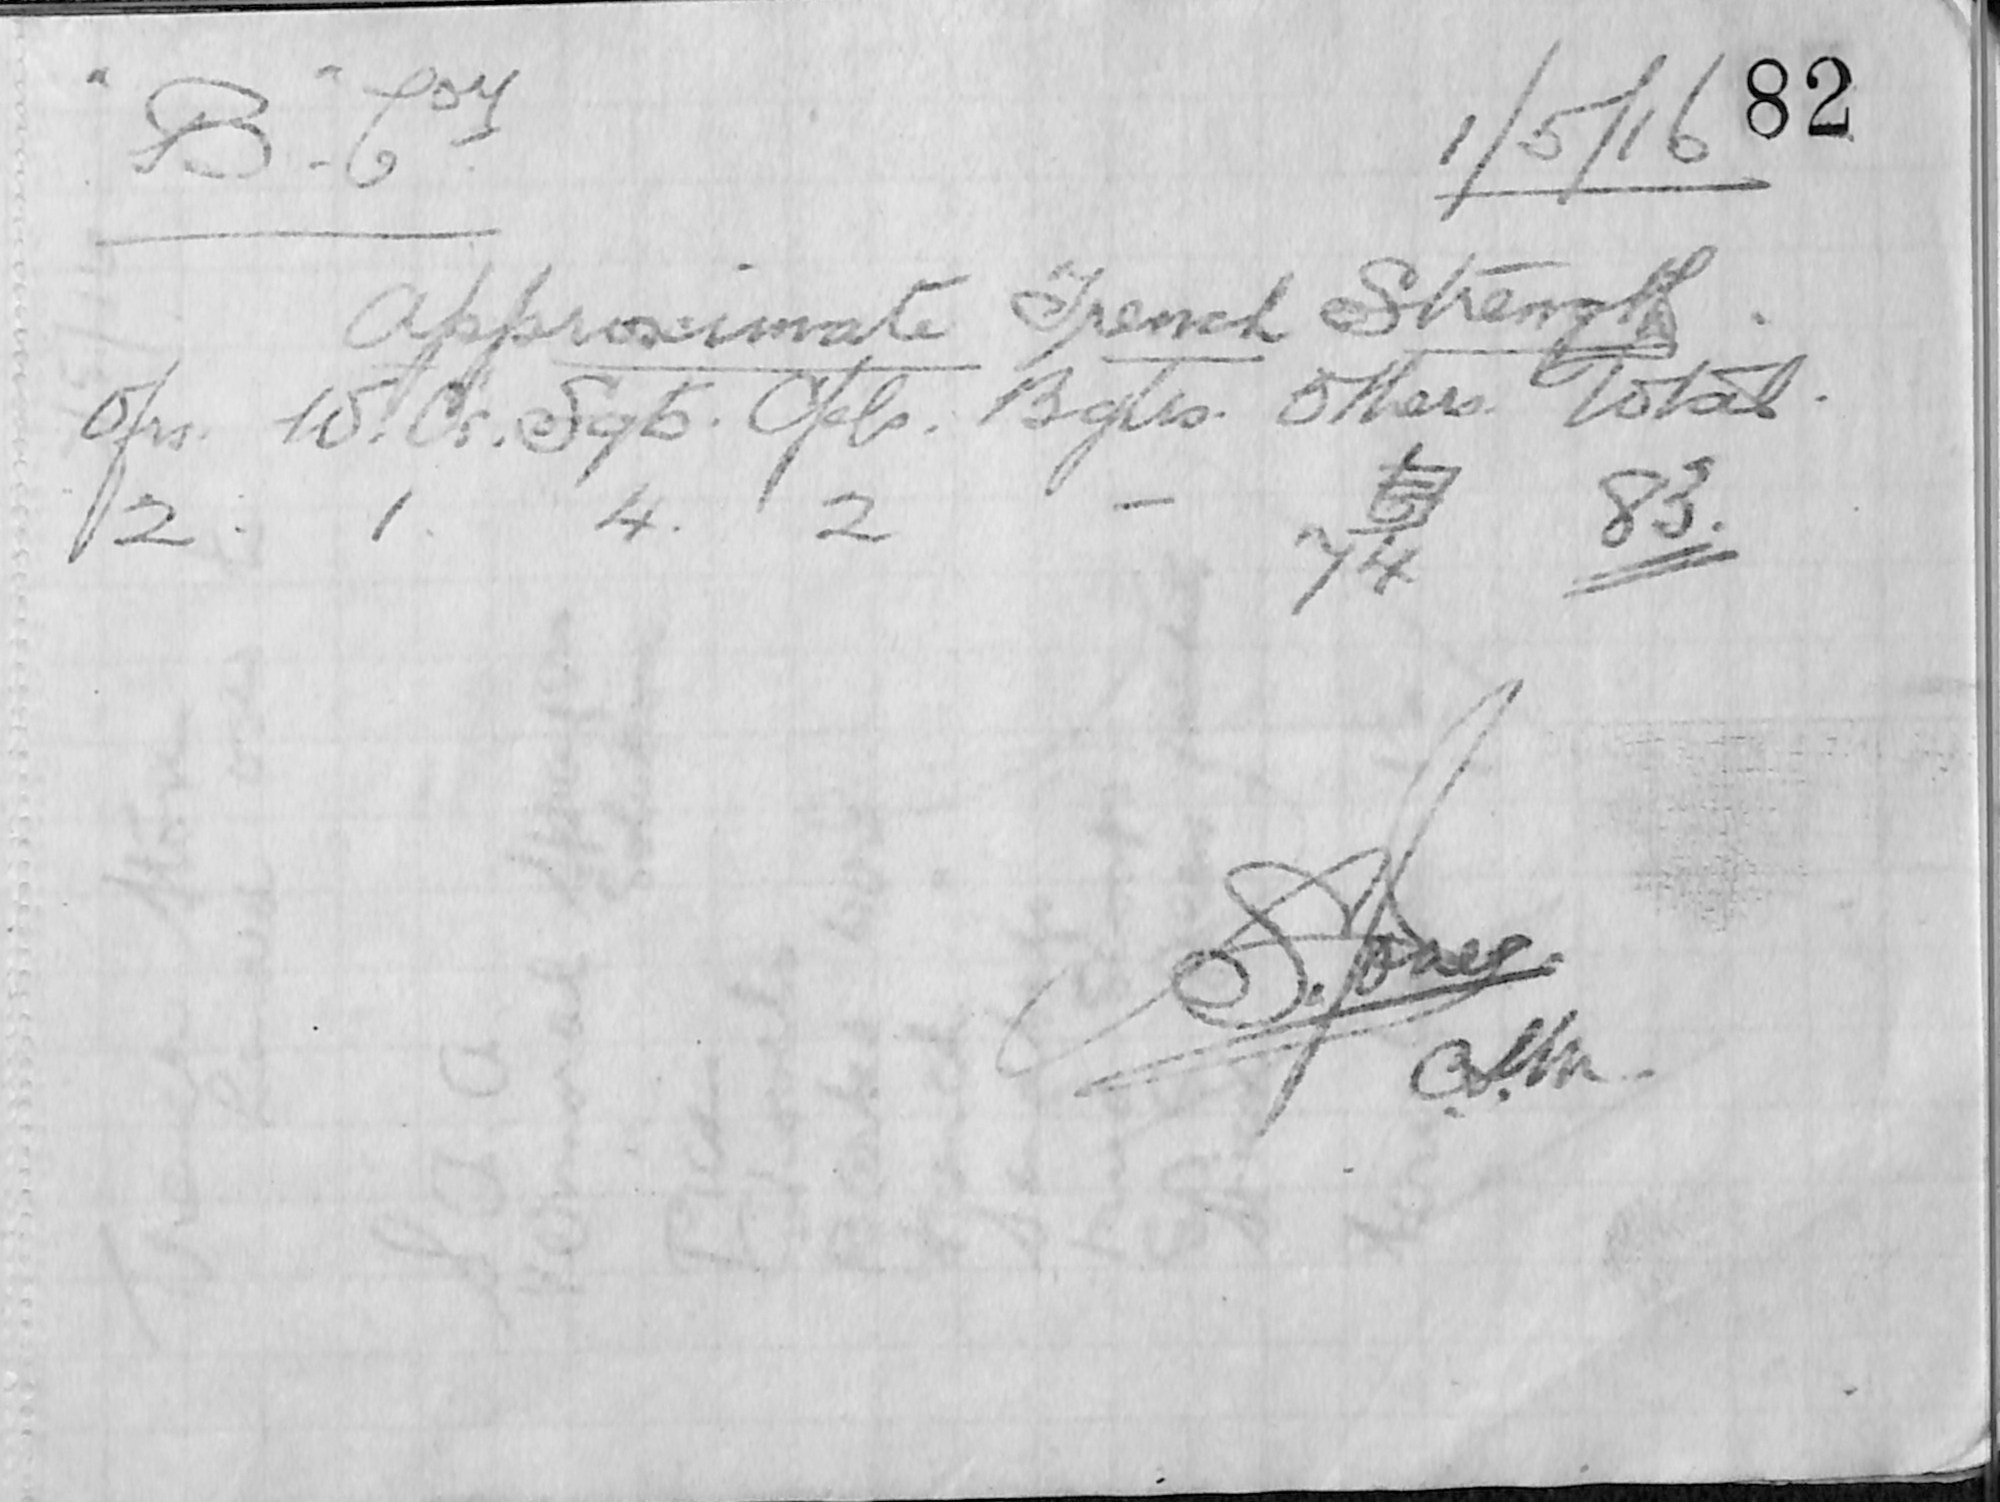 "B" Coy 1/5/16 82
Approximate Trench Strength.
Ofrs. W.Os. Sgts. Cpls. Bglrs. Others. Total.
2. 1. 4. 2 - 74 83.
S. Jones.
C.S.M.